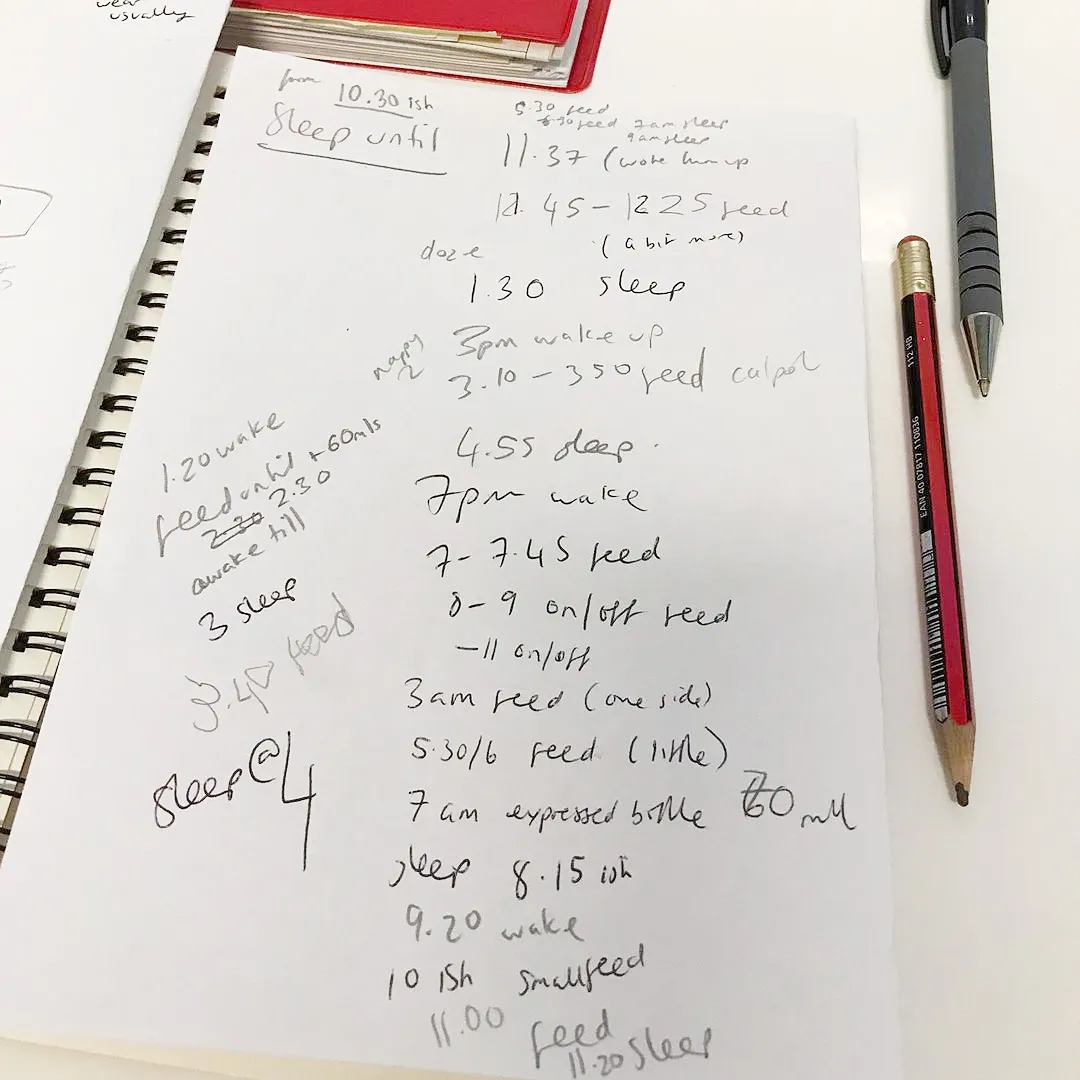 usually
from 10.30 ish
Sleep until
5.30 feed
6.30 feed 7am sleep
9am sleep
11.37 (woke him up
11.45 - 12 25 feed
(a bit more)
doze
1.30 sleep
3pm wake up
nappy
2
3.10 - 350 feed calpol
4.55 sleep
7pm wake
7 - 7.45 feed
8 - 9 on/off feed
- 11 on/off
3am feed (one side)
5.30/6 feed (little)
7 am expressed bottle 60 ml
sleep 8.15 ish
9.20 wake
10 ish small feed
11.00 feed
11.20 sleep
1.20 wake
feed until + 60mls
2.30 2.30
awake till
3 sleep
3.40 feed
sleep @ 4
112 HB
EAN 40 07817 110836